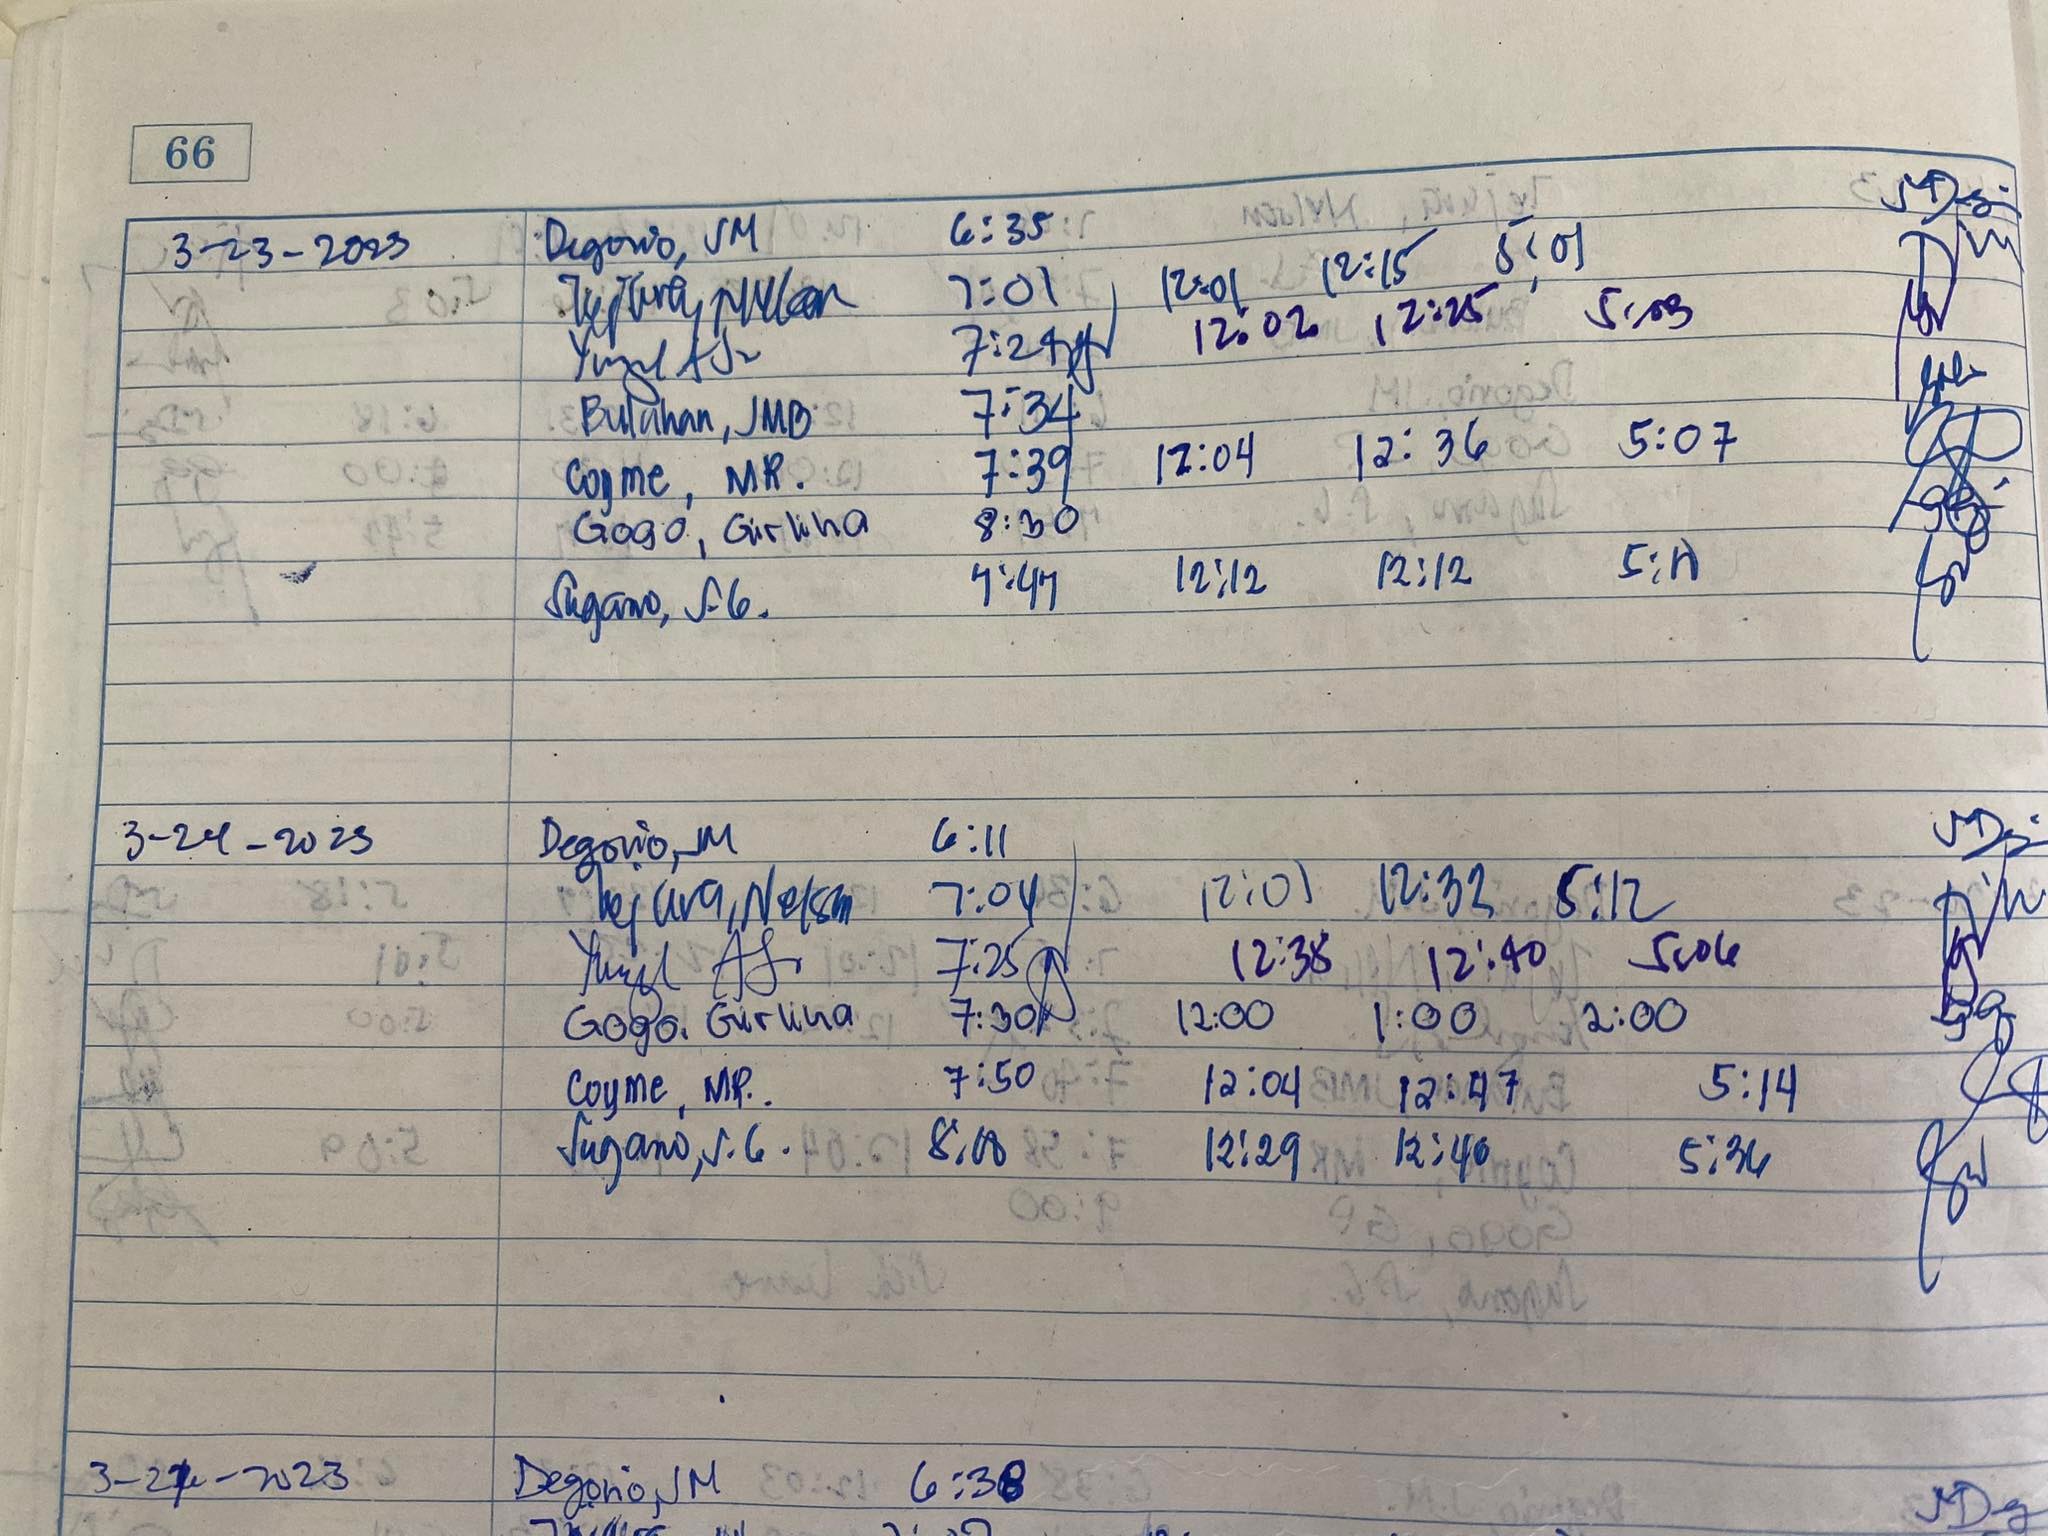 66
3-23-2023 Degorio, JM 6:35
7:01 12:01 12:15 5:01
7:24 12:02 12:25 5:03
Butahan, JMB 7:34
Coyme, MR. 7:39 12:04 12:36 5:07
Gogo, Girlina 8:30
Sugano, J.G. 7:47 12:12 12:12
3-24-2023 Degorio, JM 6:11
Tejura, Nelson 7:04 12:01 12:32 5:12
7:25 12:38 12:40 5:06
Gogo. Girlina 7:30 12:00 1:00 2:00
Coyme, MR. 7:50 12:04 12:47 5:14
Sugano, J.G. 12:29 12:40 5:36
Degorio, JM 6:38